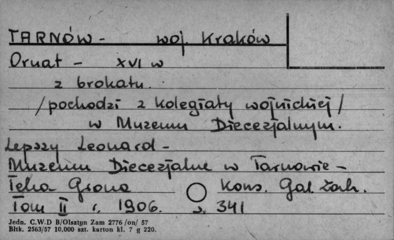 TARNÓW - woj Kraków
Ornat - XVI w
z brokatu.
/pochodzi z kolegiaty wojnickiej/
w Muzeum Diecezjalnym.
Lepszy Leonard -
Muzeum Diecezjalne w Tarnowie -
Teka Grona Kons. Gal Zach.
Tom II r. 1906. s. 341
Jedn. C.W.D B/Olsztyn Zam 2776/on/ 57
Bltk. 2563/57 10.000 szt. karton kl. 7 g 220.